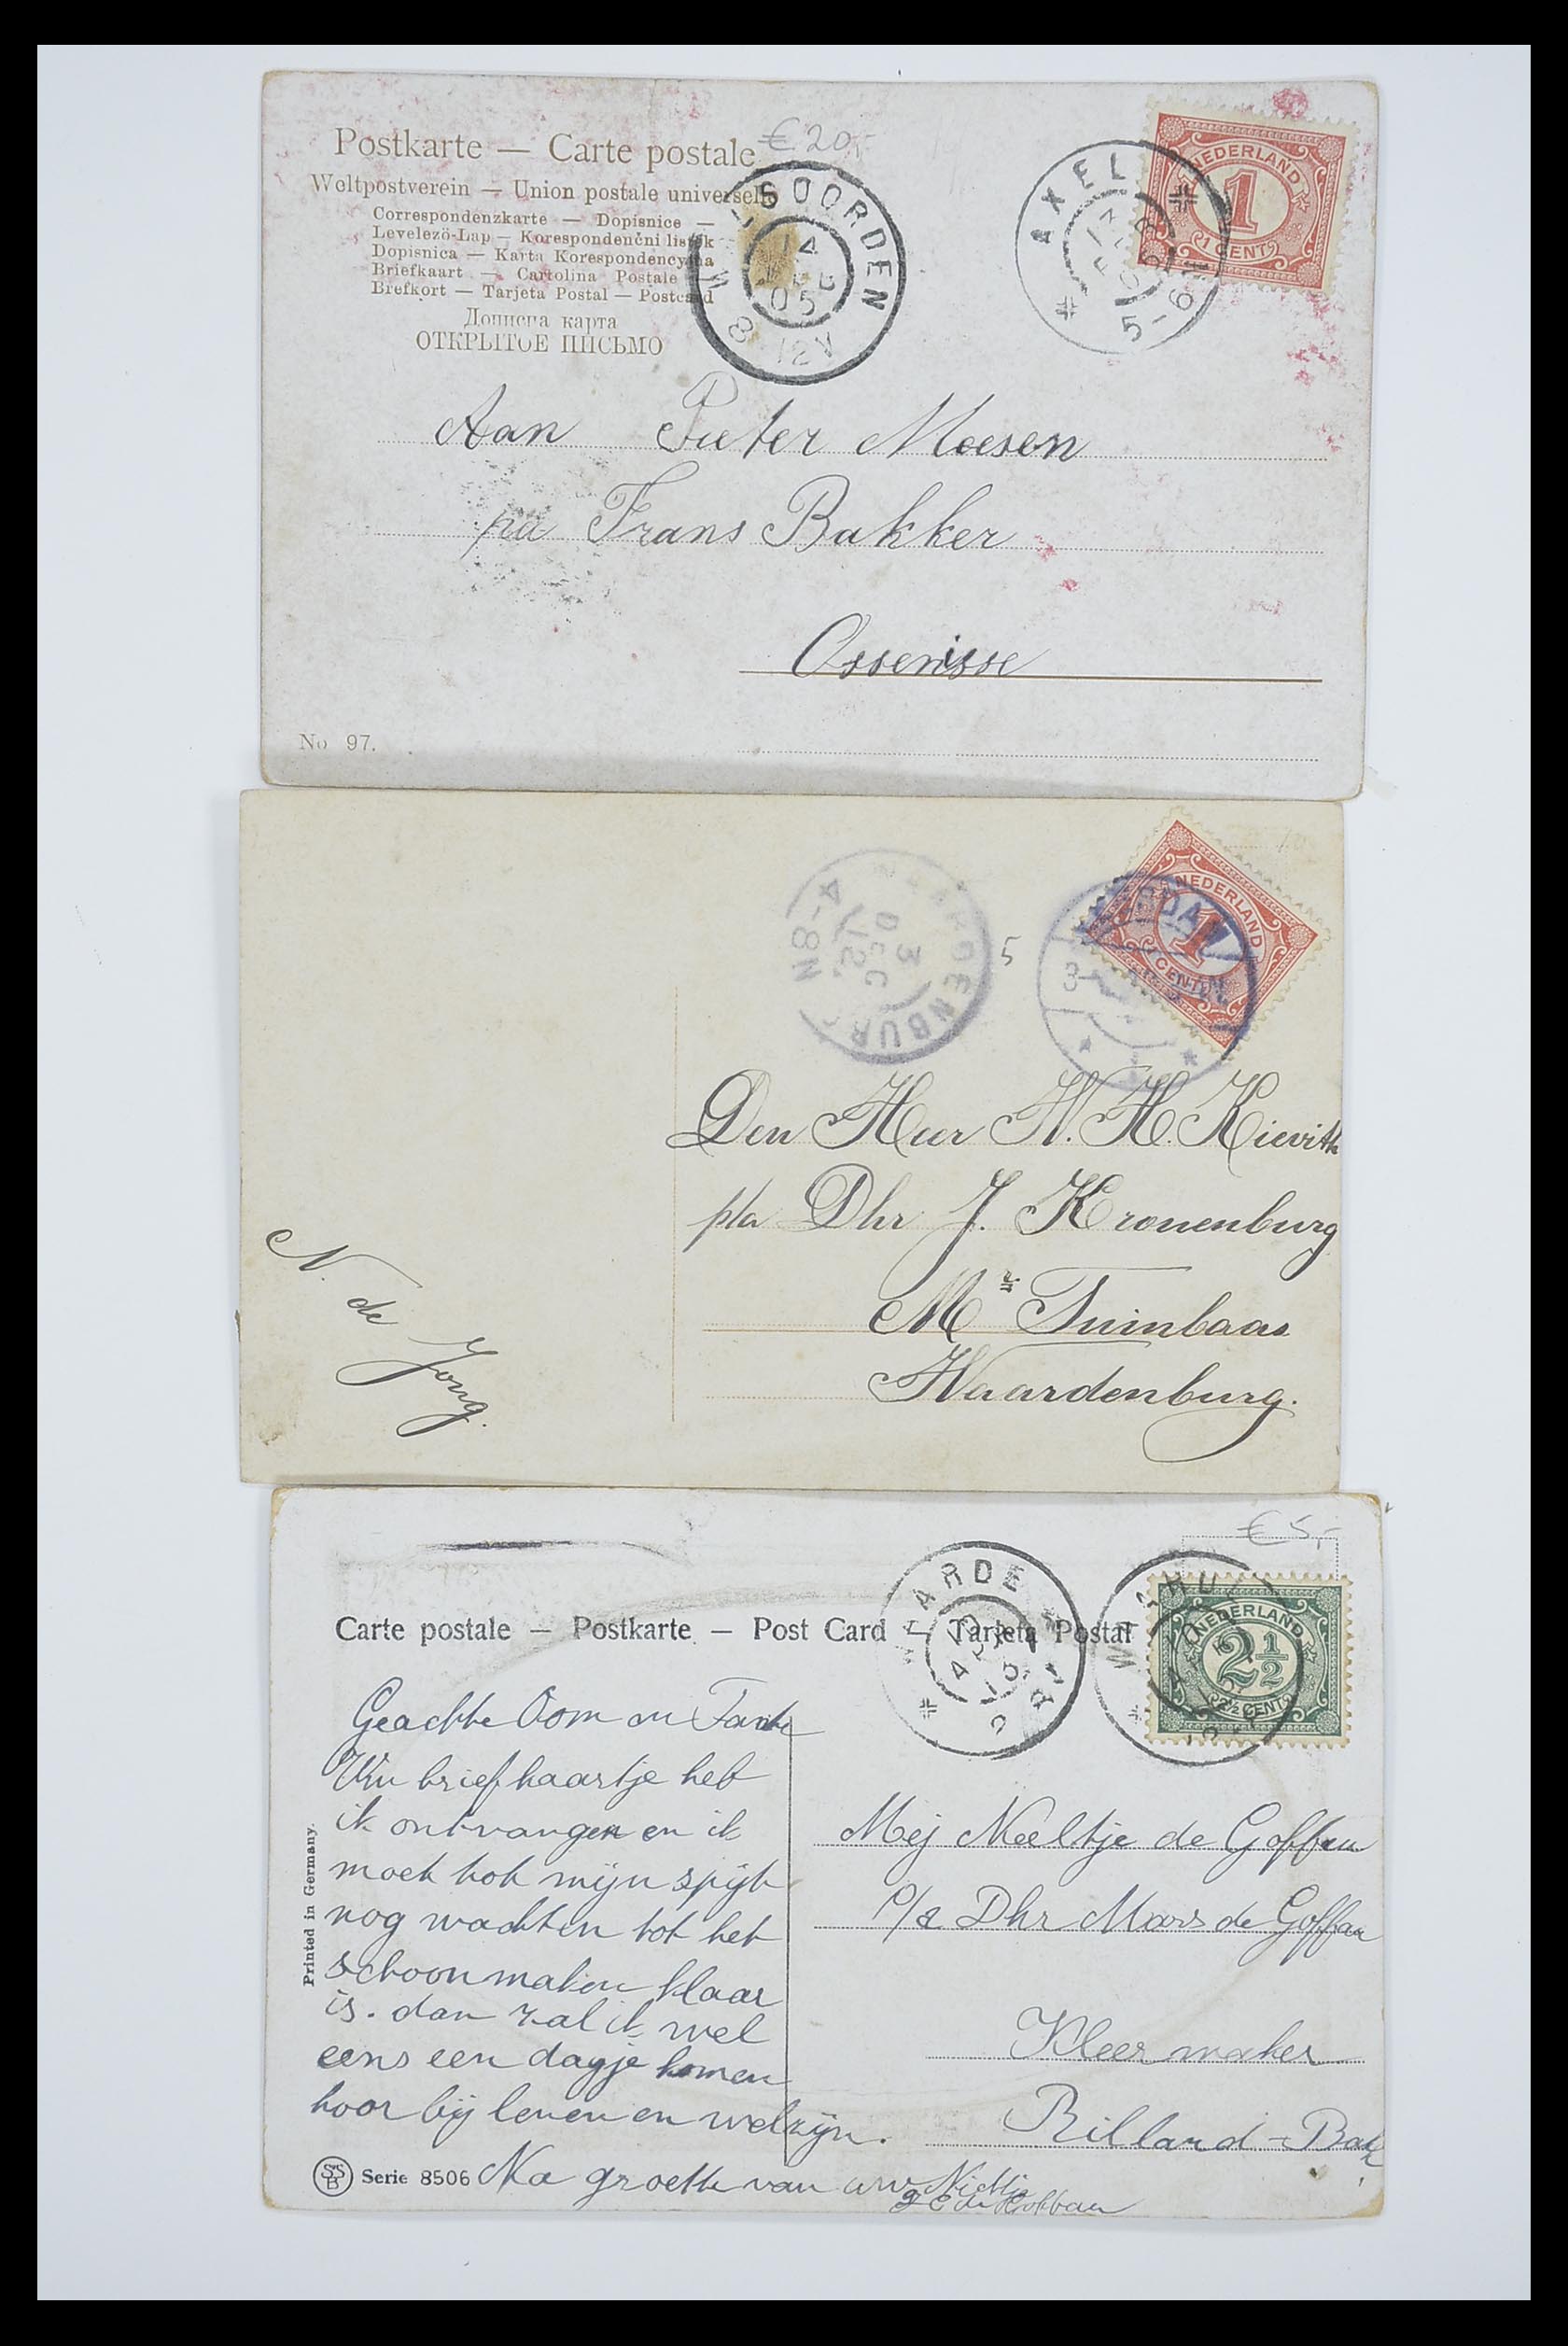 Postkarte — Carte postale
€ 20,-
Weltpostverein — Union postale universelle
Correspondenzkarte — Dopisnice —
Levelező-Lap — Korespondenčni listek
Dopisnica — Karta Korespondencyjna
Briefkaart — Cartolina Postale
Brefkort — Tarjeta Postal — Postcard
Дописна карта
ОТКРЫТОЕ ПИСЬМО
SOORDEN
14
05
8 12V
AXEL
5-6N
NEDERLAND
1
1 CENT
Aan Pieter Moesen
pa Frans Bakker
Ossenisse
No 97.
WAARDENBURG
3
DEC
12
4-8N
5
NEDERLAND
1
CENT
3-
Den Heer W. H. Kievith
p/a Dhr J. Kronenburg
Mr Tuinbaas
Waardenburg.
N. de Jong.
€ 5,-
WAARDE
NEDERLAND
2½
2½ CENT
Carte postale — Postkarte — Post Card — Tarjeta Postal
Geachte Oom en Tante
Uw briefkaartje heb
ik ontvangen en ik
moet tot mijn spijt
nog wachten tot het
schoonmaken klaar
is. dan zal ik wel
eens een dagje komen
hoor bij leven en welzijn.
Na groette van uw Nichtje
Printed in Germany.
SSB Serie 8506
Mej Neeltje de Goffau
p/a Dhr Mars de Goffau
Kleermaker
Rilland-Bath